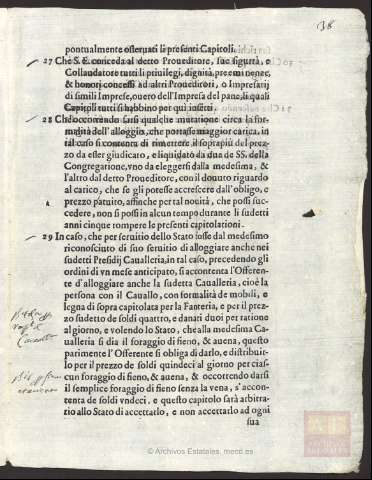 38
pontualmente osseruati li presenti Capitoli.
27 Che S. E. conceda al detto Proueditore, sue sigurtà, e
Collaudatore tutti li priuilegi, dignità, preeminenze,
& honori concessi ad altri Proueditori, o Impresarij
di simili Imprese, ouero dell'Impresa del pane, li quali
Capitoli tutti si habbino per qui inserti.
28 Che occorrendo farsi qualche mutatione circa la for-
malità dell'alloggio, che portasse maggior carica, in
tal caso si contenta di rimettere il soprapiù del prez-
zo da esser giudicato, e liquidato da due de SS. della
Congregatione, vno da eleggersi dalla medesima, &
l'altro dal detto Proueditore, con il douuto riguardo
al carico, che se gli potesse accrescere dall'obligo, e
prezzo patuito, affinche per tal nouità, che possi suc-
cedere, non si possi in alcun tempo durante li sudetti
anni cinque rompere le presenti capitolationi.
29 In caso, che per seruitio dello Stato fosse dal medesimo
riconosciuto di suo seruitio di alloggiare anche nei
sudetti Presidij Caualleria, in tal caso, precedendo gli
ordini di vn mese anticipato, si accontenta l'Offeren-
te d'alloggiare anche la sudetta Caualleria, cioè la
persona con il Cauallo, con formalità de mobili, e
legna di sopra capitolata per la Fanteria, e per il prez-
zo sudetto de soldi quattro, e danari duoi per ratione
al giorno, e volendo lo Stato, che alla medesima Ca-
ualleria si dia il foraggio di fieno, & auena, questo
parimente l'Offerente si obliga di darlo, e distribuir-
lo per il prezzo de soldi quindeci al giorno per cias-
cun foraggio di fieno, & auena, & occorrendo darsi
il semplice foraggio di fieno senza la vena, s'accon-
tenta de soldi vndeci. e questo capitolo sarà arbitra-
rio allo Stato di accettarlo, e non accettarlo ad ogni
sua
Cauallo
© Archivos Estatales, mecd.es